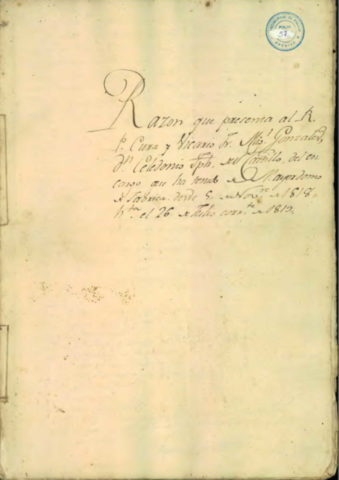 Razon que presenta al R.
P. Cura y Vicario Fr. Mig.l Gonzalez,
Dn. Celedonio Jph. del Castillo, del en
cargo que ha tenido de Mayordomo
de Fabrica desde 5 de Nov.e de 1818.
hta. el 26 de Julio corr.te de 1819.